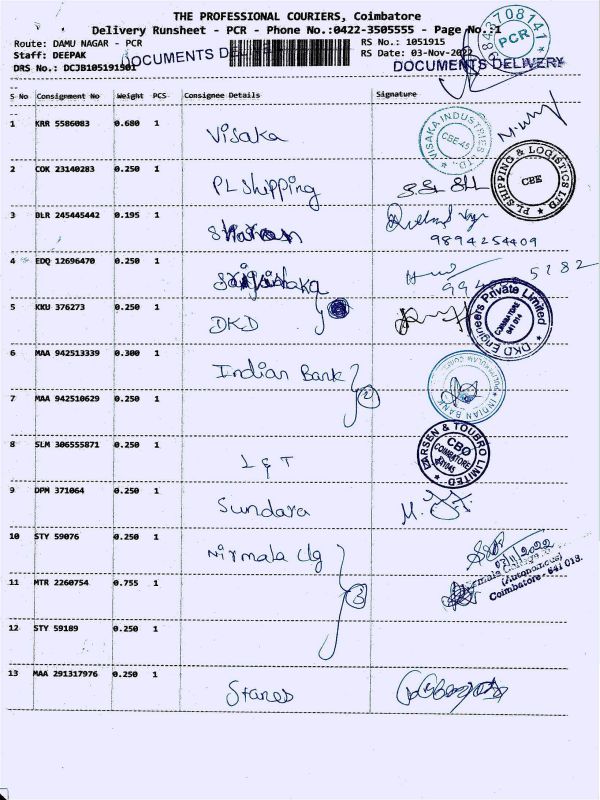 THE PROFESSIONAL COURIERS, Coimbatore
Delivery Runsheet - PCR - Phone No.:0422-3505555 - Page No.:1
Route: DAMU NAGAR - PCR RS No.: 1051915
Staff: DEEPAK RS Date: 03-Nov-2022
DRS No.: DCJB105191501
DOCUMENTS DELIVERY
PCR
S No Consignment No Weight PCS Consignee Details Signature
1 KRR 5586083 0.680 1 Visaka
VISAKA INDUSTRIES LTD. CBE-45
2 COK 23140283 0.250 1 PL Shipping
PL SHIPPING & LOGISTICS LTD CBE
3 BLR 245445442 0.195 1
9894254409
4 EDQ 12696470 0.250 1
994 5182
5 KKU 376273 0.250 1 DKD
DKD Engineers Private Limited COIMBATORE 641 014
6 MAA 942513339 0.300 1 Indian Bank
INDIAN BANK
7 MAA 942510629 0.250 1 2
8 SLM 306555871 0.250 1 L & T
LARSEN & TOUBRO LIMITED CBO COIMBATORE
9 DPM 371064 0.250 1 Sundara
10 STY 59076 0.250 1 Nirmala Clg
(Autonomous)
Coimbatore - 641 018.
11 MTR 2260754 0.755 1 3
12 STY 59189 0.250 1
13 MAA 291317976 0.250 1 Stanes